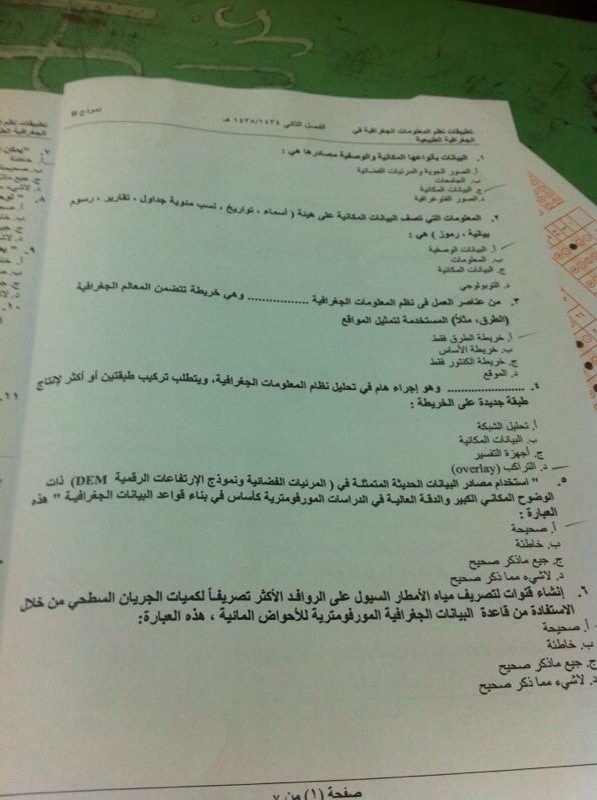 تطبيقات نظم المعلومات الجغرافية في
الجغرافية الطبيعية
الفصل الثاني ١٤٣٥/١٤٣٤ هـ
نموذج B
١. البيانات بأنواعها المكانية والوصفية مصادرها هي :
أ. الصور الجوية والمرئيات الفضائية
ب. الجامعات
ج. البيانات المكانية
د. الصور الفلتوغرافية
٢. المعلومات التي تصف البيانات المكانية على هيئة ( أسماء ، تواريخ ، نسب مئوية جداول ، تقارير ، رسوم
بيانية ، رموز ) هي :
أ. البيانات الوصفية
ب. المعلومات
ج. البيانات المكانية
د. التوبولوجي
٣. من عناصر العمل في نظم المعلومات الجغرافية ................ وهي خريطة تتضمن المعالم الجغرافية
(الطرق، مثلاً) المستخدمة لتمثيل المواقع
أ. خريطة الطرق فقط
ب. خريطة الأساس
ج. خريطة الكنتور فقط
د. الموقع
٤. ...................... وهو إجراء هام في تحليل نظام المعلومات الجغرافية، ويتطلب تركيب طبقتين أو أكثر لإنتاج
طبقة جديدة على الخريطة :
أ. تحليل الشبكة
ب. البيانات المكانية
ج. أجهزة التفسير
د. التراكب (overlay)
٥. " استخدام مصادر البيانات الحديثة المتمثلة في ( المرئيات الفضائية ونموذج الإرتفاعات الرقمية DEM) ذات
الوضوح المكاني الكبير والدقة العالية في الدراسات المورفومترية كأساس في بناء قواعد البيانات الجغرافية " هذه
العبارة :
أ. صحيحة
ب. خاطئة
ج. جيع ماذكر صحيح
د. لاشيء مما ذكر صحيح
٦. إنشاء قنوات لتصريف مياه الأمطار السيول على الروافد الأكثر تصريفاً لكميات الجريان السطحي من خلال
الاستفادة من قاعدة البيانات الجغرافية المورفومترية للأحواض المائية ، هذه العبارة:
أ. صحيحة
ب. خاطئة
ج. جيع ماذكر صحيح
د. لاشيء مما ذكر صحيح
صفحة (١) من ٧
تطبيقات نظم
الجغرافية
٧. "يمكن
أ. خاطئة
ب. صحيحة
ج. جيع
د. لاشيء
٨.
٩.
١٠.
١١.